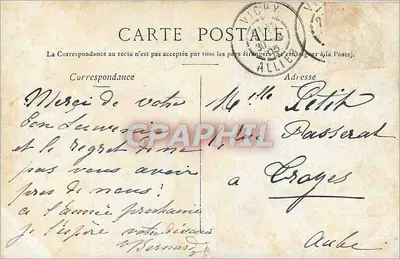 CARTE POSTALE
La Correspondance au recto n'est pas acceptée par tous les pays étrangers (Se renseigner à la Poste).
VICHY
ALLIER
Correspondance
Adresse
Merci de votre
bon Souvenir
et le regret de ne
pas vous avoir
près de nous!
à l'année prochaine
je l'espère votre dévoué
Bernard
Melle Petit
rue Passerat
a Troyes
Aube
CPAPHIL